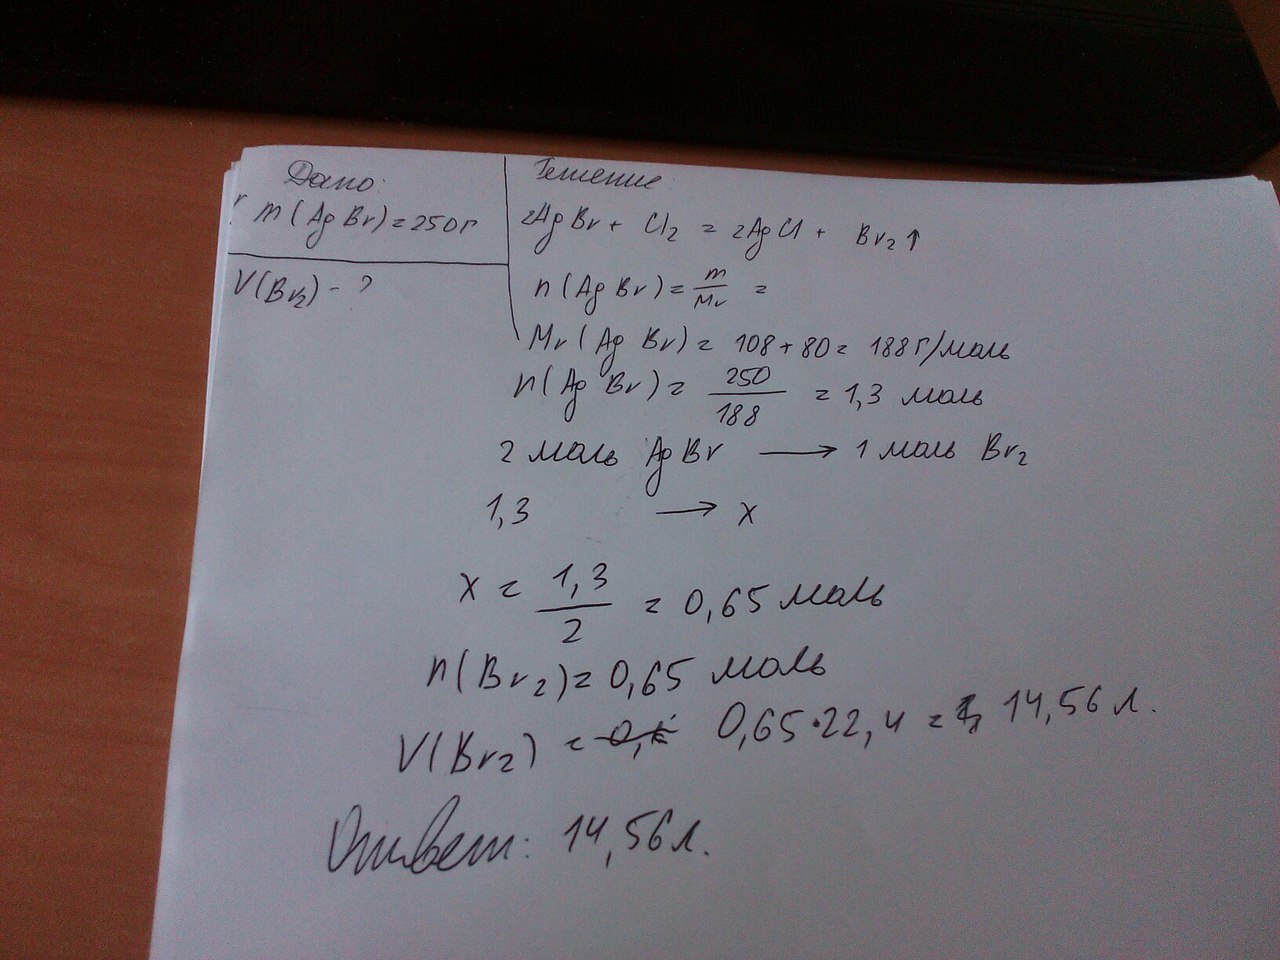 Дано:
m(AgBr)=250г
V(Br2) - ?
Решение
2AgBr + Cl2 = 2AgCl + Br2↑
n(AgBr) = m/Mr =
Mr(AgBr) = 108 + 80 = 188 г/моль
n(AgBr) = 250/188 = 1,3 моль
2 моль AgBr → 1 моль Br2
1,3 → x
x = 1,3/2 = 0,65 моль
n(Br2) = 0,65 моль
V(Br2) = 0,65·22,4 = 14,56 л.
Ответ: 14,56 л.